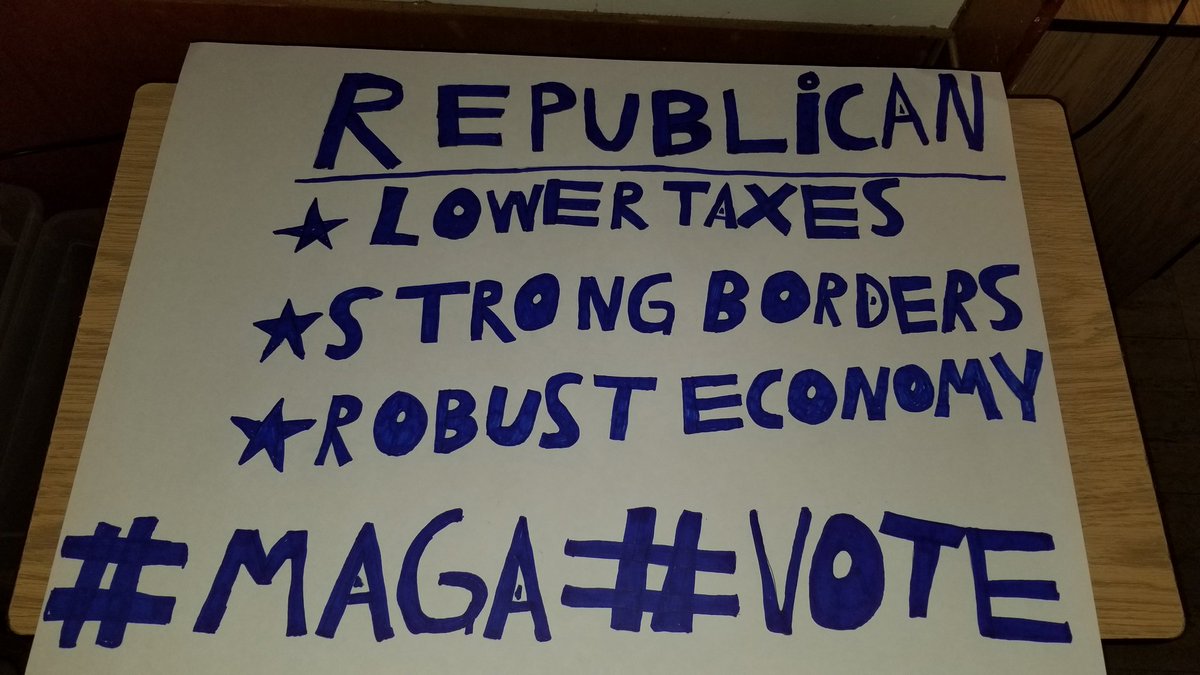 REPUBLiCAN
★ LOWER TAXES
★ STRONG BORDERS
★ ROBUST ECONOMY
#MAGA#VOTE